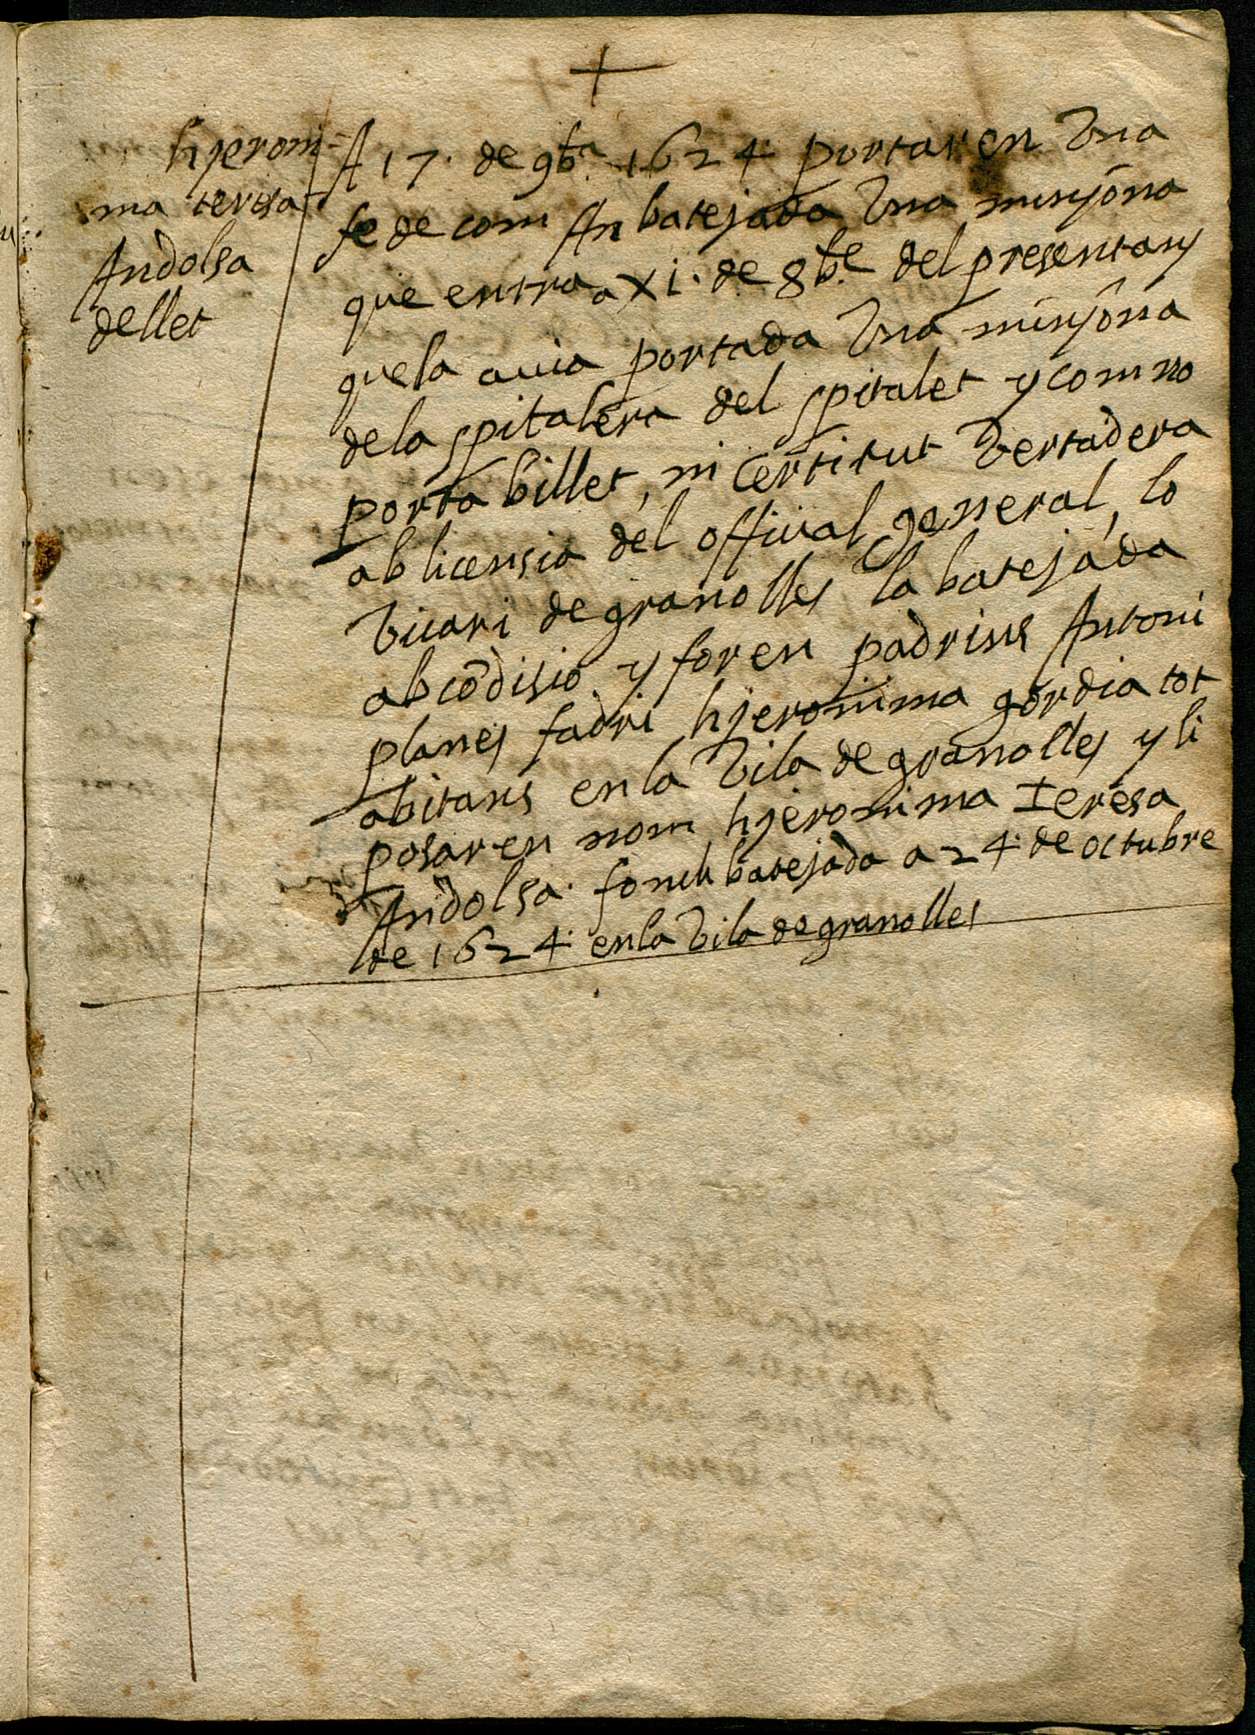 +
hjeroni-
ma teresa
Andolsa
de llet
A 17 · de 9b.ª 1624 · portaren Una
fe de com An batejada Una minyona
que entra a XI · de 8b.e del present any
que la auia portada Una minyona
de la spitalera del spitalet y com no
porta billet, ni certitut Vertadera
ab licensia del offitial general, lo
Vicari de granolles la batejada
ab cõdisio y foren padrins Antoni
planes fadri hjeronima gordia tot
abitans en la Vila de granolles y li
posaren nom hjeronima Teresa
Andolsa · fonch batejada a 24 · de octubre
de 1624 · en la Vila de granolles